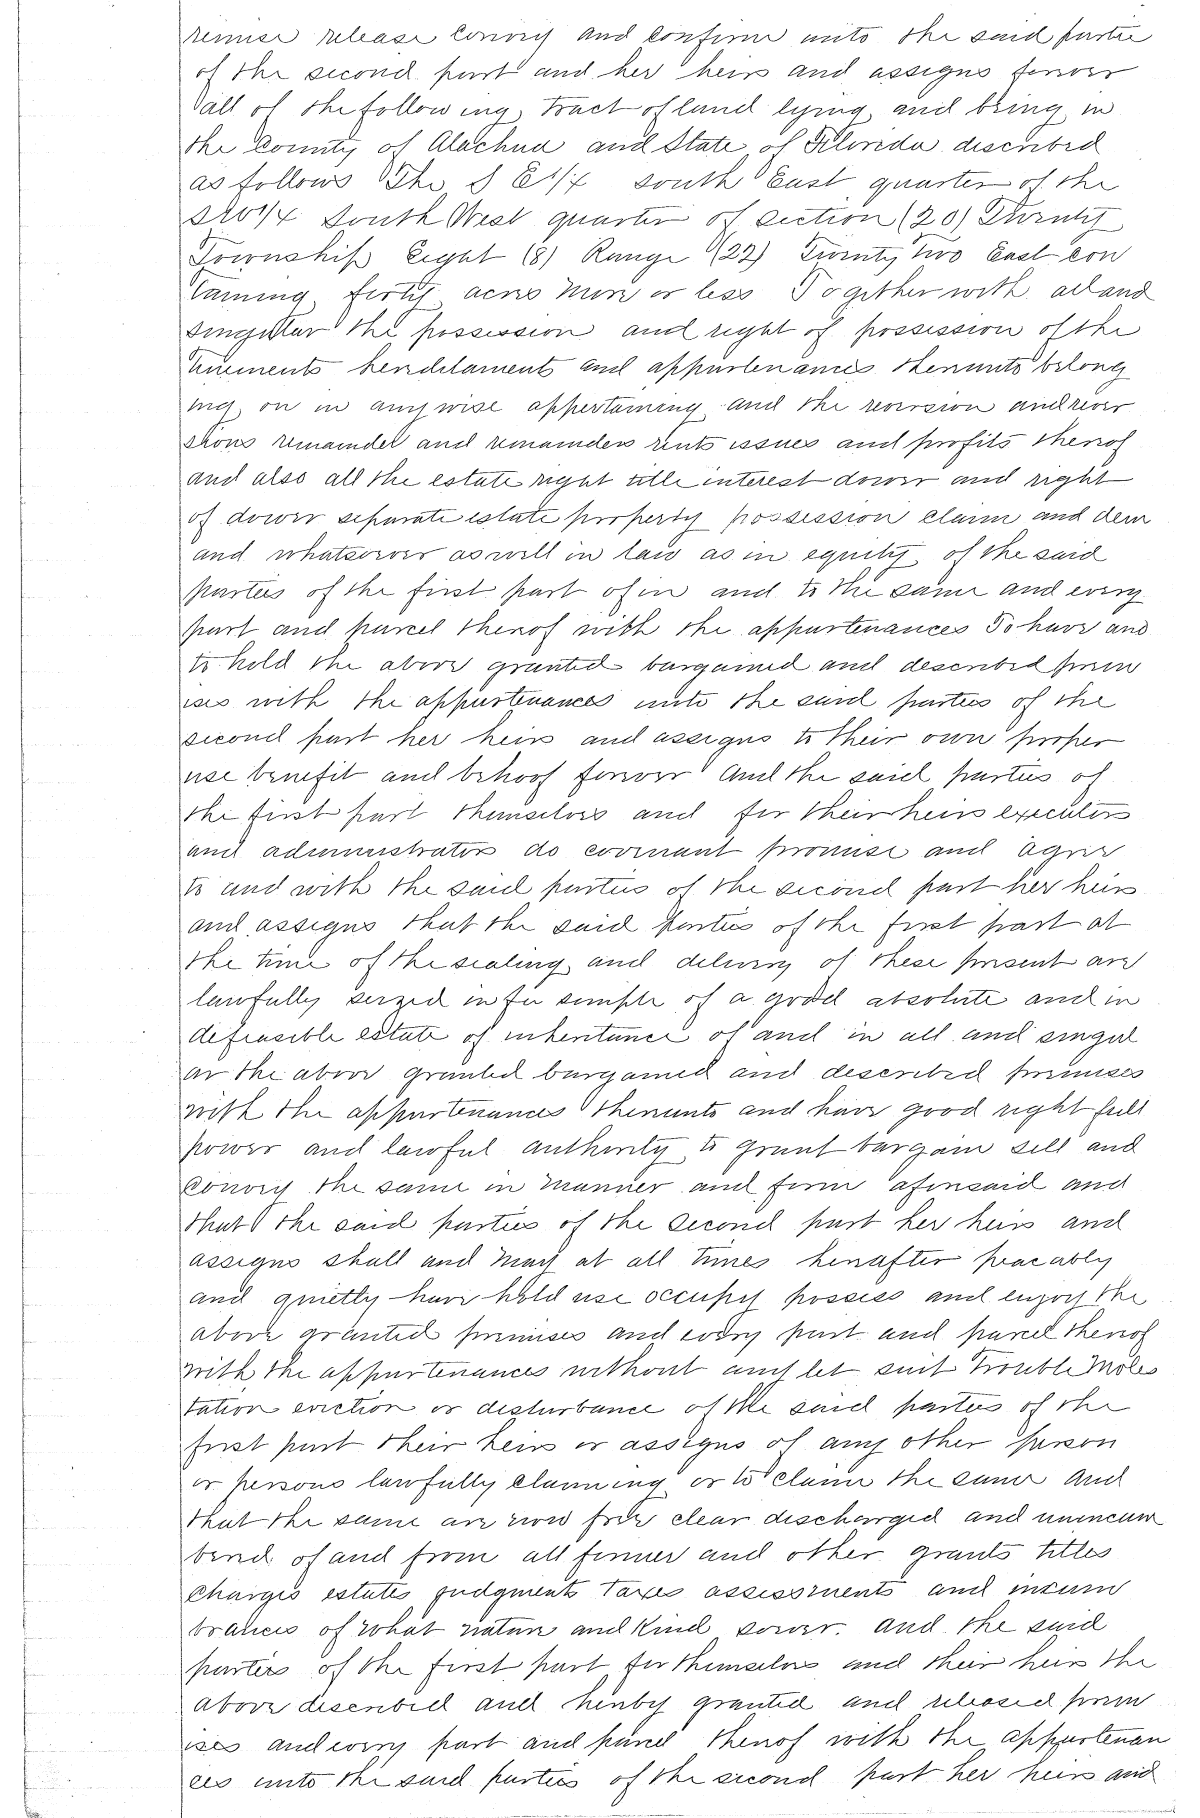 remise release convey and confirm unto the said partie
of the second part and her heirs and assigns forever
all of the following tract of land lying and being in
the County of Alachua and State of Florida described
as follows The S E 1/4 South East quarter of the
S W 1/4 South West quarter of section (20) Twenty
Township Eight (8) Range (22) Twenty Two East con
taining forty acres more or less Together with all and
singular the possession and right of possession of the
tenements hereditaments and appurtenances thereunto belong
ing on in any wise appertaining and the reversion and rever
sions remainder and remainders rents issues and profits thereof
and also all the estate right title interest dower and right
of dower separate estate property possession claim and dem
and whatsoever as well in law as in equity of the said
parties of the first part of in and to the same and every
part and parcel thereof with the appurtenances To have and
to hold the above granted bargained and described prem
ises with the appurtenances unto the said parties of the
second part her heirs and assigns to their own proper
use benefit and behoof forever And the said parties of
the first part themselves and for their heirs executors
and administrators do covenant promise and agree
to and with the said parties of the second part her heirs
and assigns that the said parties of the first part at
the time of the sealing and delivery of these present are
lawfully seized in fee simple of a good absolute and in
defeasible estate of inheritance of and in all and singul
ar the above granted bargained and described premises
with the appurtenances thereunto and have good right full
power and lawful authority to grant bargain sell and
convey the same in manner and form aforesaid and
that the said parties of the second part her heirs and
assigns shall and may at all times hereafter peacably
and quietly have hold use occupy possess and enjoy the
above granted premises and every part and parcel thereof
with the appurtenances without any let suit trouble moles
tation eviction or disturbance of the said parties of the
first part their heirs or assigns of any other person
or persons lawfully claiming or to claim the same and
that the same are now free clear discharged and unincum
bered of and from all former and other grants titles
charges estates judgments taxes assessments and incum
brances of what nature and kind soever. and the said
parties of the first part for themselves and their heirs the
above described and hereby granted and released prem
ises and every part and parcel thereof with the appurtenan
ces unto the said parties of the second part her heirs and